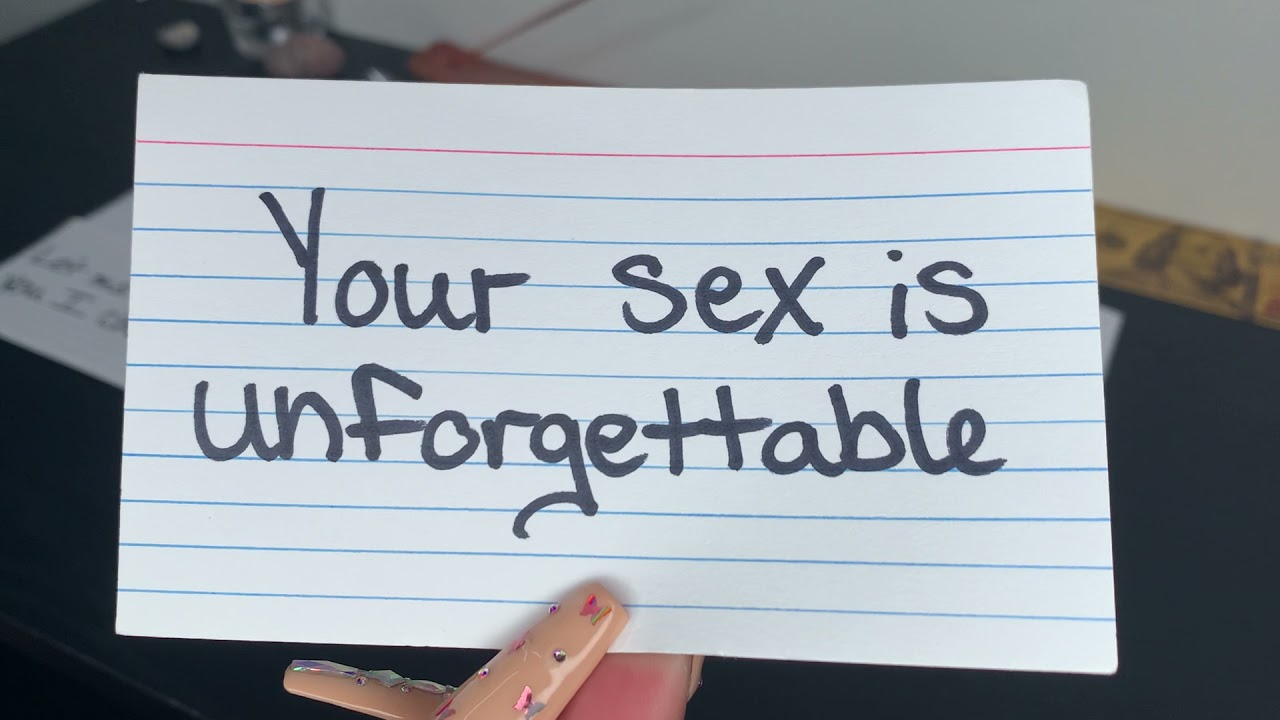 Your sex is
unforgettable
Let me
you I